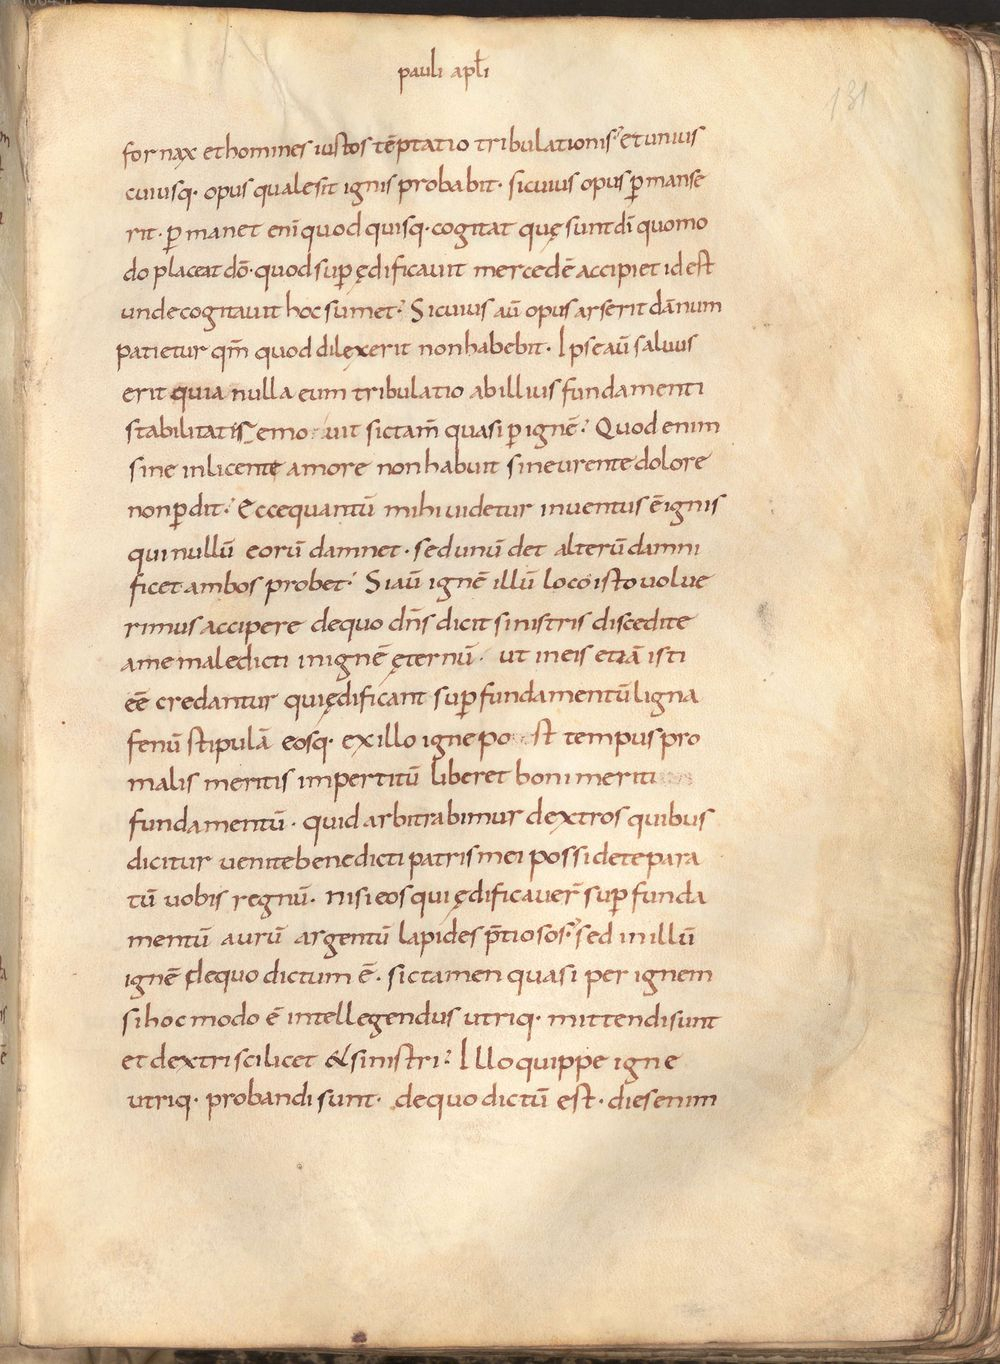 pauli apłi
131
fornax et homines iustos tēptatio tribulationis et unius
cuiusq· opus quale sit ignis probabit· sicuius opus ꝑmanse
rit· ꝑmanet enī quod quisq· cogitat quę sunt dī quomo
do placeat dō· quod suꝑędificauit mercedē accipiet idest
unde cogitauit hoc sumet· Sicuius aū opus arserit dānum
patietur qm̄ quod dilexerit non habebit· Ipse aū saluus
erit quia nulla eum tribulatio ab illius fundamenti
stabilitatis emouit sic tam̄ quasi ꝑ ignē· Quod enim
sine inlicente amore non habuit sine urente dolore
non ꝑdit· Ecce quantū mihi uidetur inuentus ē ignis
qui nullū eorū damnet· sed unū det alterū damni
ficet ambos probet· Si aū ignē illū loco isto uolue
rimus accipere de quo dn̄s dicit sinistris discedite
a me maledicti in ignē ęternū· ut in eis etiā isti
eē credantur qui ędificant suꝑ fundamentū ligna
fenū stipulā eosq· ex illo igne post tempus pro
malis meritis impertitū liberet boni meriti
fundamentū· quid arbitrabimur dextros quibus
dicitur uenite benedicti patris mei possidete para
tū uobis regnū· nisi eos qui ędificauer̄ suꝑ funda
mentū aurū argentū lapides p̄tiosos· sed in illū
ignē de quo dictum ē· sic tamen quasi per ignem
si hoc modo ē intellegendus utriq· mittendi sunt
et dextri scilicet & sinistri· Illo quippe igne
utriq· probandi sunt· de quo dictū est· dies enim